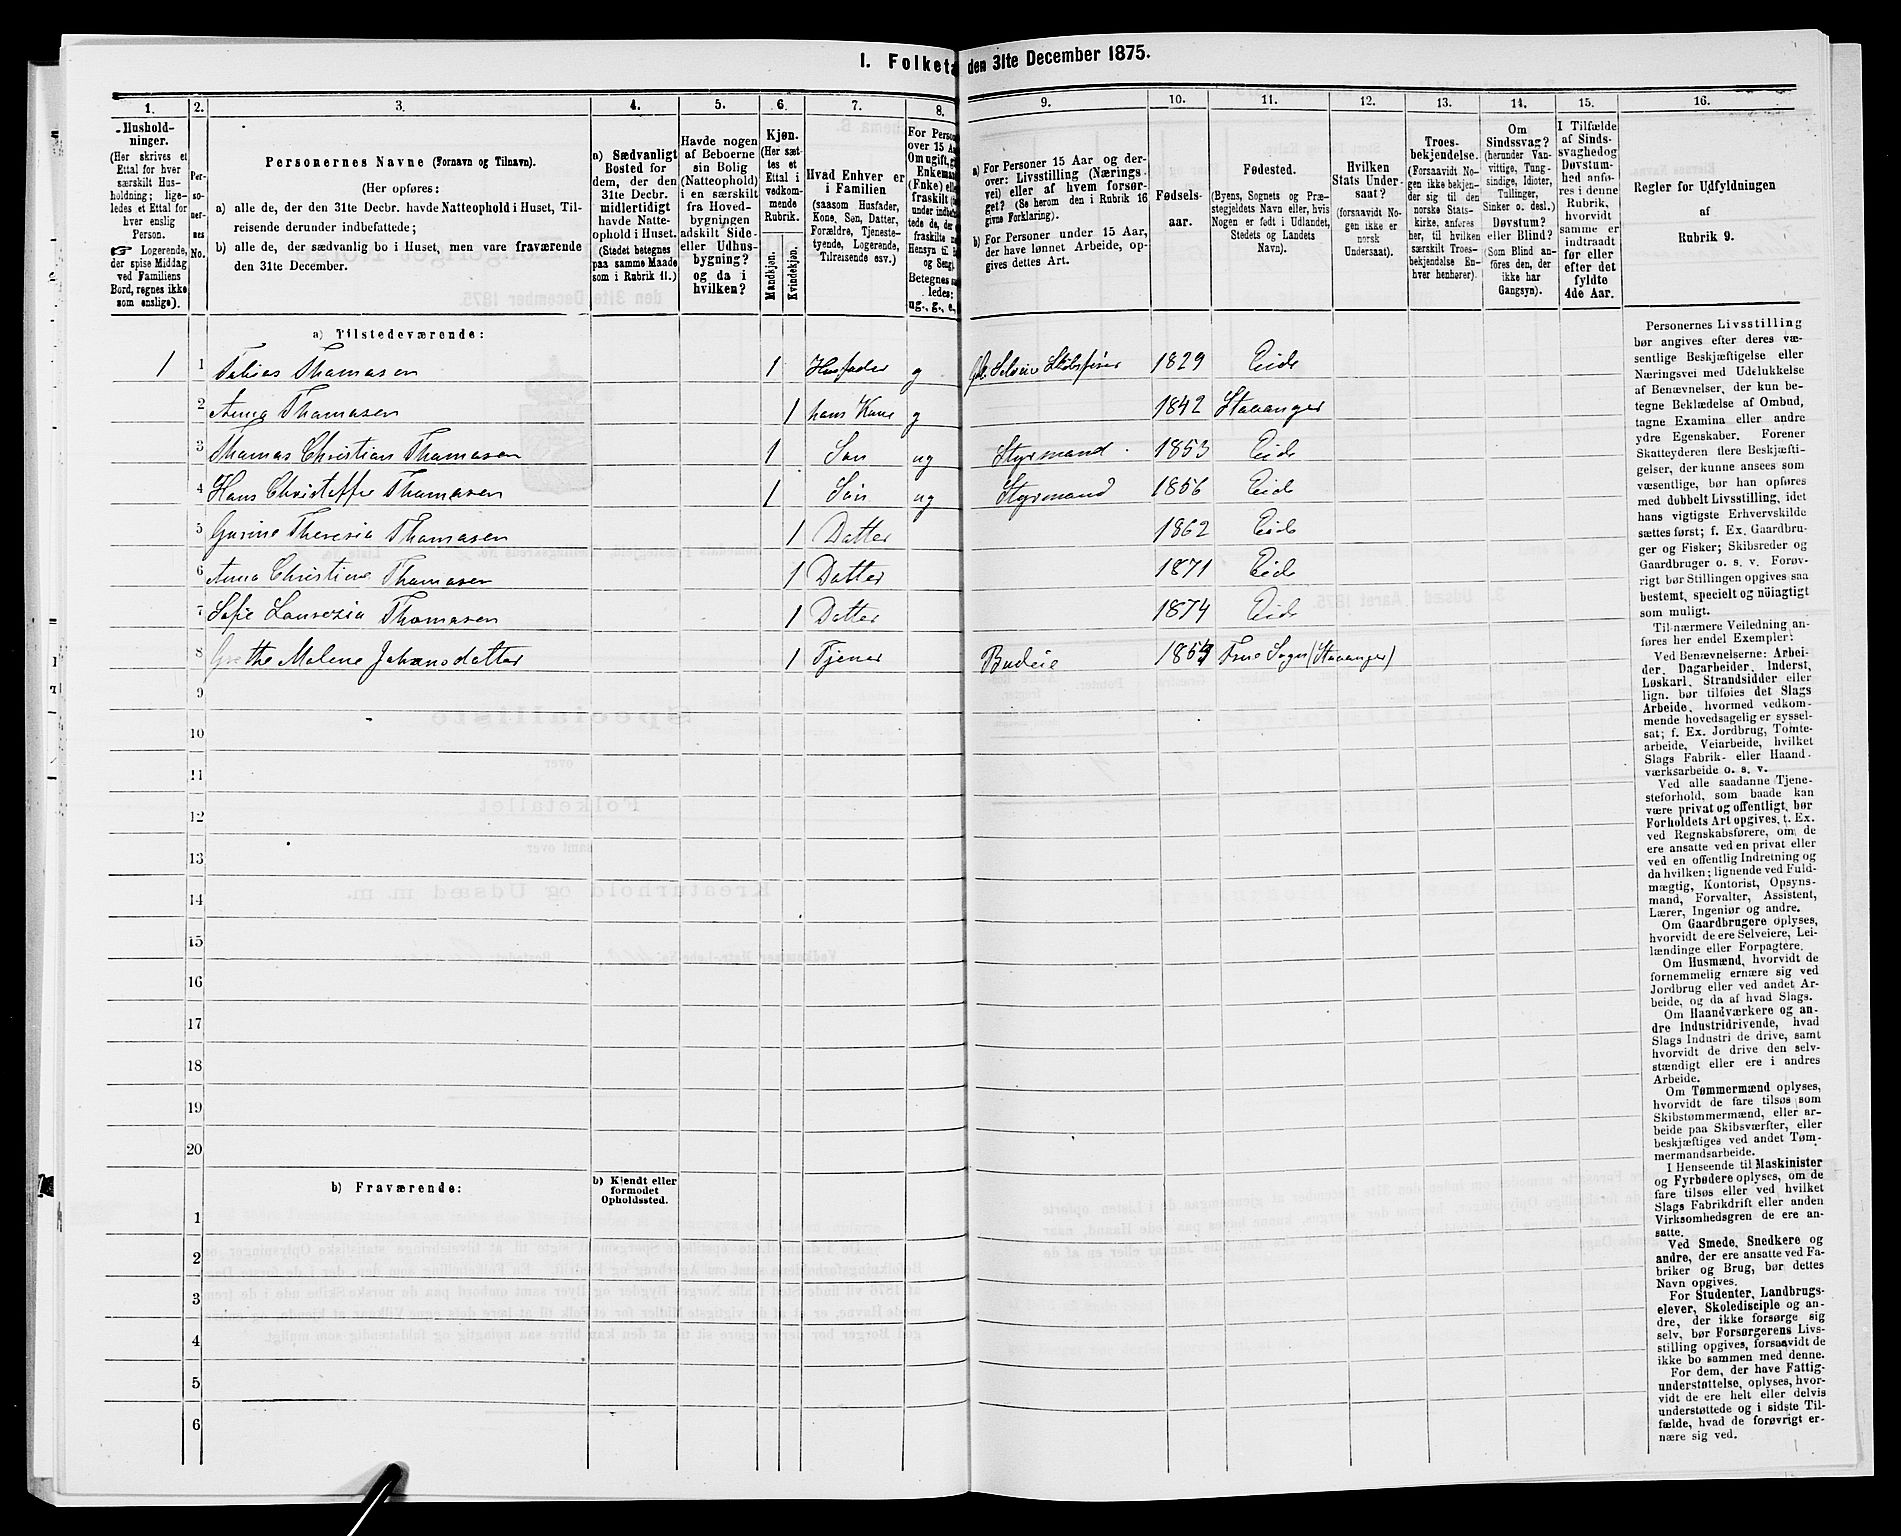 I. Folketa den 31te December 1875.
1. 2. 3. 4. 5. 6. 7. 8. 9. 10. 11. 12. 13. 14. 15. 16.
Hushold-
ninger.
(Her skrives et
Ettal for hver
særskilt Hus-
holdning; lige-
ledes et Ettal for
hver enslig
Person.
☞ Logerende,
der spise Middag
ved Familiens
Bord, regnes ikke
som enslige).
Per-
so-
ner-
nes
No.
Personernes Navne (Fornavn og Tilnavn).
(Her opføres:
a) alle de, der den 31te Decbr. havde Natteophold i Huset, Til-
reisende derunder indbefattede;
b) alle de, der sædvanlig bo i Huset, men vare fraværende
den 31te December.
a) Sædvanligt
Bosted for
dem, der den
31te Decbr.
midlertidigt
havde Natte-
ophold i Huset.
(Stedet betegnes
paa samme Maade
som i Rubrik 11.)
Havde nogen
af Beboerne
sin Bolig
(Natteophold)
i en særskilt
fra Hoved-
bygningen
adskilt Side-
eller Udhus-
bygning?
og da i
hvilken?
Kjøn.
(Her sæt-
tes et
Ettal i
vedkom-
mende
Rubrik.
Mandkjøn.
Kvindekjøn.
Hvad Enhver er
i Familien
(saasom Husfader,
Kone, Søn, Datter,
Forældre, Tjeneste-
tyende, Logerende,
Tilreisende osv.)
For Person
over 15 Aa
Om ugift, gi
Enkeman
(Enke) elle
fraskilt
under indbef
tede de, der
fraskilte
Hensyn til
og Seng).
Betegnes saa
ledes:
ug., g., e.,
a) For Personer 15 Aar og der-
over: Livsstilling (Nærings-
vei) eller af hvem forsør-
get? (Se herom den i Rubrik 16
givne Forklaring).
b) For Personer under 15 Aar,
der have lønnet Arbeide, op-
gives dettes Art.
Fødsels-
aar.
Fødested.
(Byens, Sognets og Præ-
stegjeldets Navn eller, hvis
Nogen er født i Udlandet,
Stedets og Landets
Navn).
Hvilken
Stats Under-
saat?
(forsaavidt No-
gen ikke er
norsk
Undersaat).
Troes-
bekjendelse.
(Forsaavidt No-
gen ikke bekjen-
der sig til den
norske Stats-
kirke, anføres
her, til hvilken
særskilt Troes-
bekjendelse En-
hver henhører).
Om
Sindssvag?
(herunder Van-
vittige, Tung-
sindige, Idioter,
Tullinger,
Sinker o. desl.)
Døvstum?
eller Blind?
(Som Blind an-
føres den, der
ikke har
Gangsyn).
I Tilfælde
af Sinds-
svaghed og
Døvstum-
hed anfø-
res i denne
Rubrik,
hvorvidt
samme er
indtraadt
før eller
efter det
fyldte
4de Aar.
Regler for Udfyldningen
af
Rubrik 9.
a) Tilstedeværende:
1 1 Tobias Thomasen 1 Husfader g Selveier Skibsfører 1829 Eide
2 Anna Thomasen 1 hans Kone g 1842 Stavanger
3 Thomas Christian Thomasen 1 Søn ug Styrmand 1853 Eide
4 Hans Christoffer Thomasen 1 Søn ug Styrmand 1856 Eide
5 Gurine Theresia Thomasen 1 Datter 1862 Eide
6 Anna Christine Thomasen 1 Datter 1871 Eide
7 Sofie Lauresia Thomasen 1 Datter 1874 Eide
8 Grethe Malene Johansdatter 1 Tjener Budeie Frue Sogn (Stavanger)
9
10
11
12
13
14
15
16
17
18
19
20
b) Fraværende:
b) Kjendt eller
formodet
Opholdssted.
1
2
3
4
5
6
Personernes Livsstilling
bør angives efter deres væ-
sentlige Beskjæftigelse eller
Næringsvei med Udelukkelse
af Benævnelser, der kun be-
tegne Beklædelse af Ombud,
tagne Examina eller andre
ydre Egenskaber. Forener
Skatteyderen flere Beskjæfti-
gelser, der kunne ansees som
væsentlige, bør han opføres
med dobbelt Livsstilling, idet
hans vigtigste Erhvervskilde
sættes først; f. Ex. Gaardbru-
ger og Fisker; Skibsreder og
Gaardbruger o. s. v. Forøv-
rigt bør Stillingen opgives saa
bestemt, specielt og nöiagtigt
som muligt.
Til nærmere Veiledning an-
føres her endel Exempler:
Ved Benævnelserne: Arbei-
der, Dagarbeider, Inderst,
Løskarl, Strandsidder eller
lign. bør tilføies det Slags
Arbeide, hvormed vedkom-
mende hovedsagelig er syssel-
sat; f. Ex. Jordbrug, Tomte-
arbeide, Veiarbeide, hvilket
Slags Fabrik- eller Haand-
værksarbeide o. s. v.
Ved alle saadanne Tjene-
steforhold, som baade kan
være privat og offentligt, bør
Forholdets Art opgives, f. Ex.
ved Regnskabsførere, om de
ere ansatte ved en privat eller
ved en offentlig Indretning og
da hvilken; lignende ved Fuld-
mægtig, Kontorist, Opsyns-
mand, Forvalter, Assistent,
Lærer, Ingeniør og andre.
Om Gaardbrugere oplyses,
hvorvidt de ere Selveiere, Lei-
lændinge eller Forpagtere.
Om Husmænd, hvorvidt de
fornemmelig ernære sig ved
Jordbrug eller ved andet Ar-
beide, og da af hvad Slags.
Om Haandværkere og an-
dre Industridrivende, hvad
Slags Industri de drive, samt
hvorvidt de drive den selv-
stændigt eller ere i andres
Arbeide.
Om Tømmermænd oplyses,
hvorvidt de fare tilsøs som
Skibstømmermænd, eller ar-
beide paa Skibsværfter, eller
beskjæftiges ved andet Tøm-
mermandsarbeide.
I Henseende til Maskinister
og Fyrbødere oplyses, om de
fare tilsøs eller ved hvilket
Slags Fabrikdrift eller anden
Virksomhedsgren de ere an-
satte.
Ved Smede, Snedkere og
andre, der ere ansatte ved Fa-
briker og Brug, bør dettes
Navn opgives.
For Studenter, Landbrugs-
elever, Skoledisciple og an-
dre, der ikke forsørge sig
selv, bør Forsørgerens Livs-
stilling opgives, forsaavidt de
ikke bo sammen med denne.
For dem, der have Fattig-
understøttelse, oplyses, hvor-
vidt de ere helt eller delvis
understøttede og i sidste Til-
fælde, hvad de forøvrigt er-
nære sig ved.